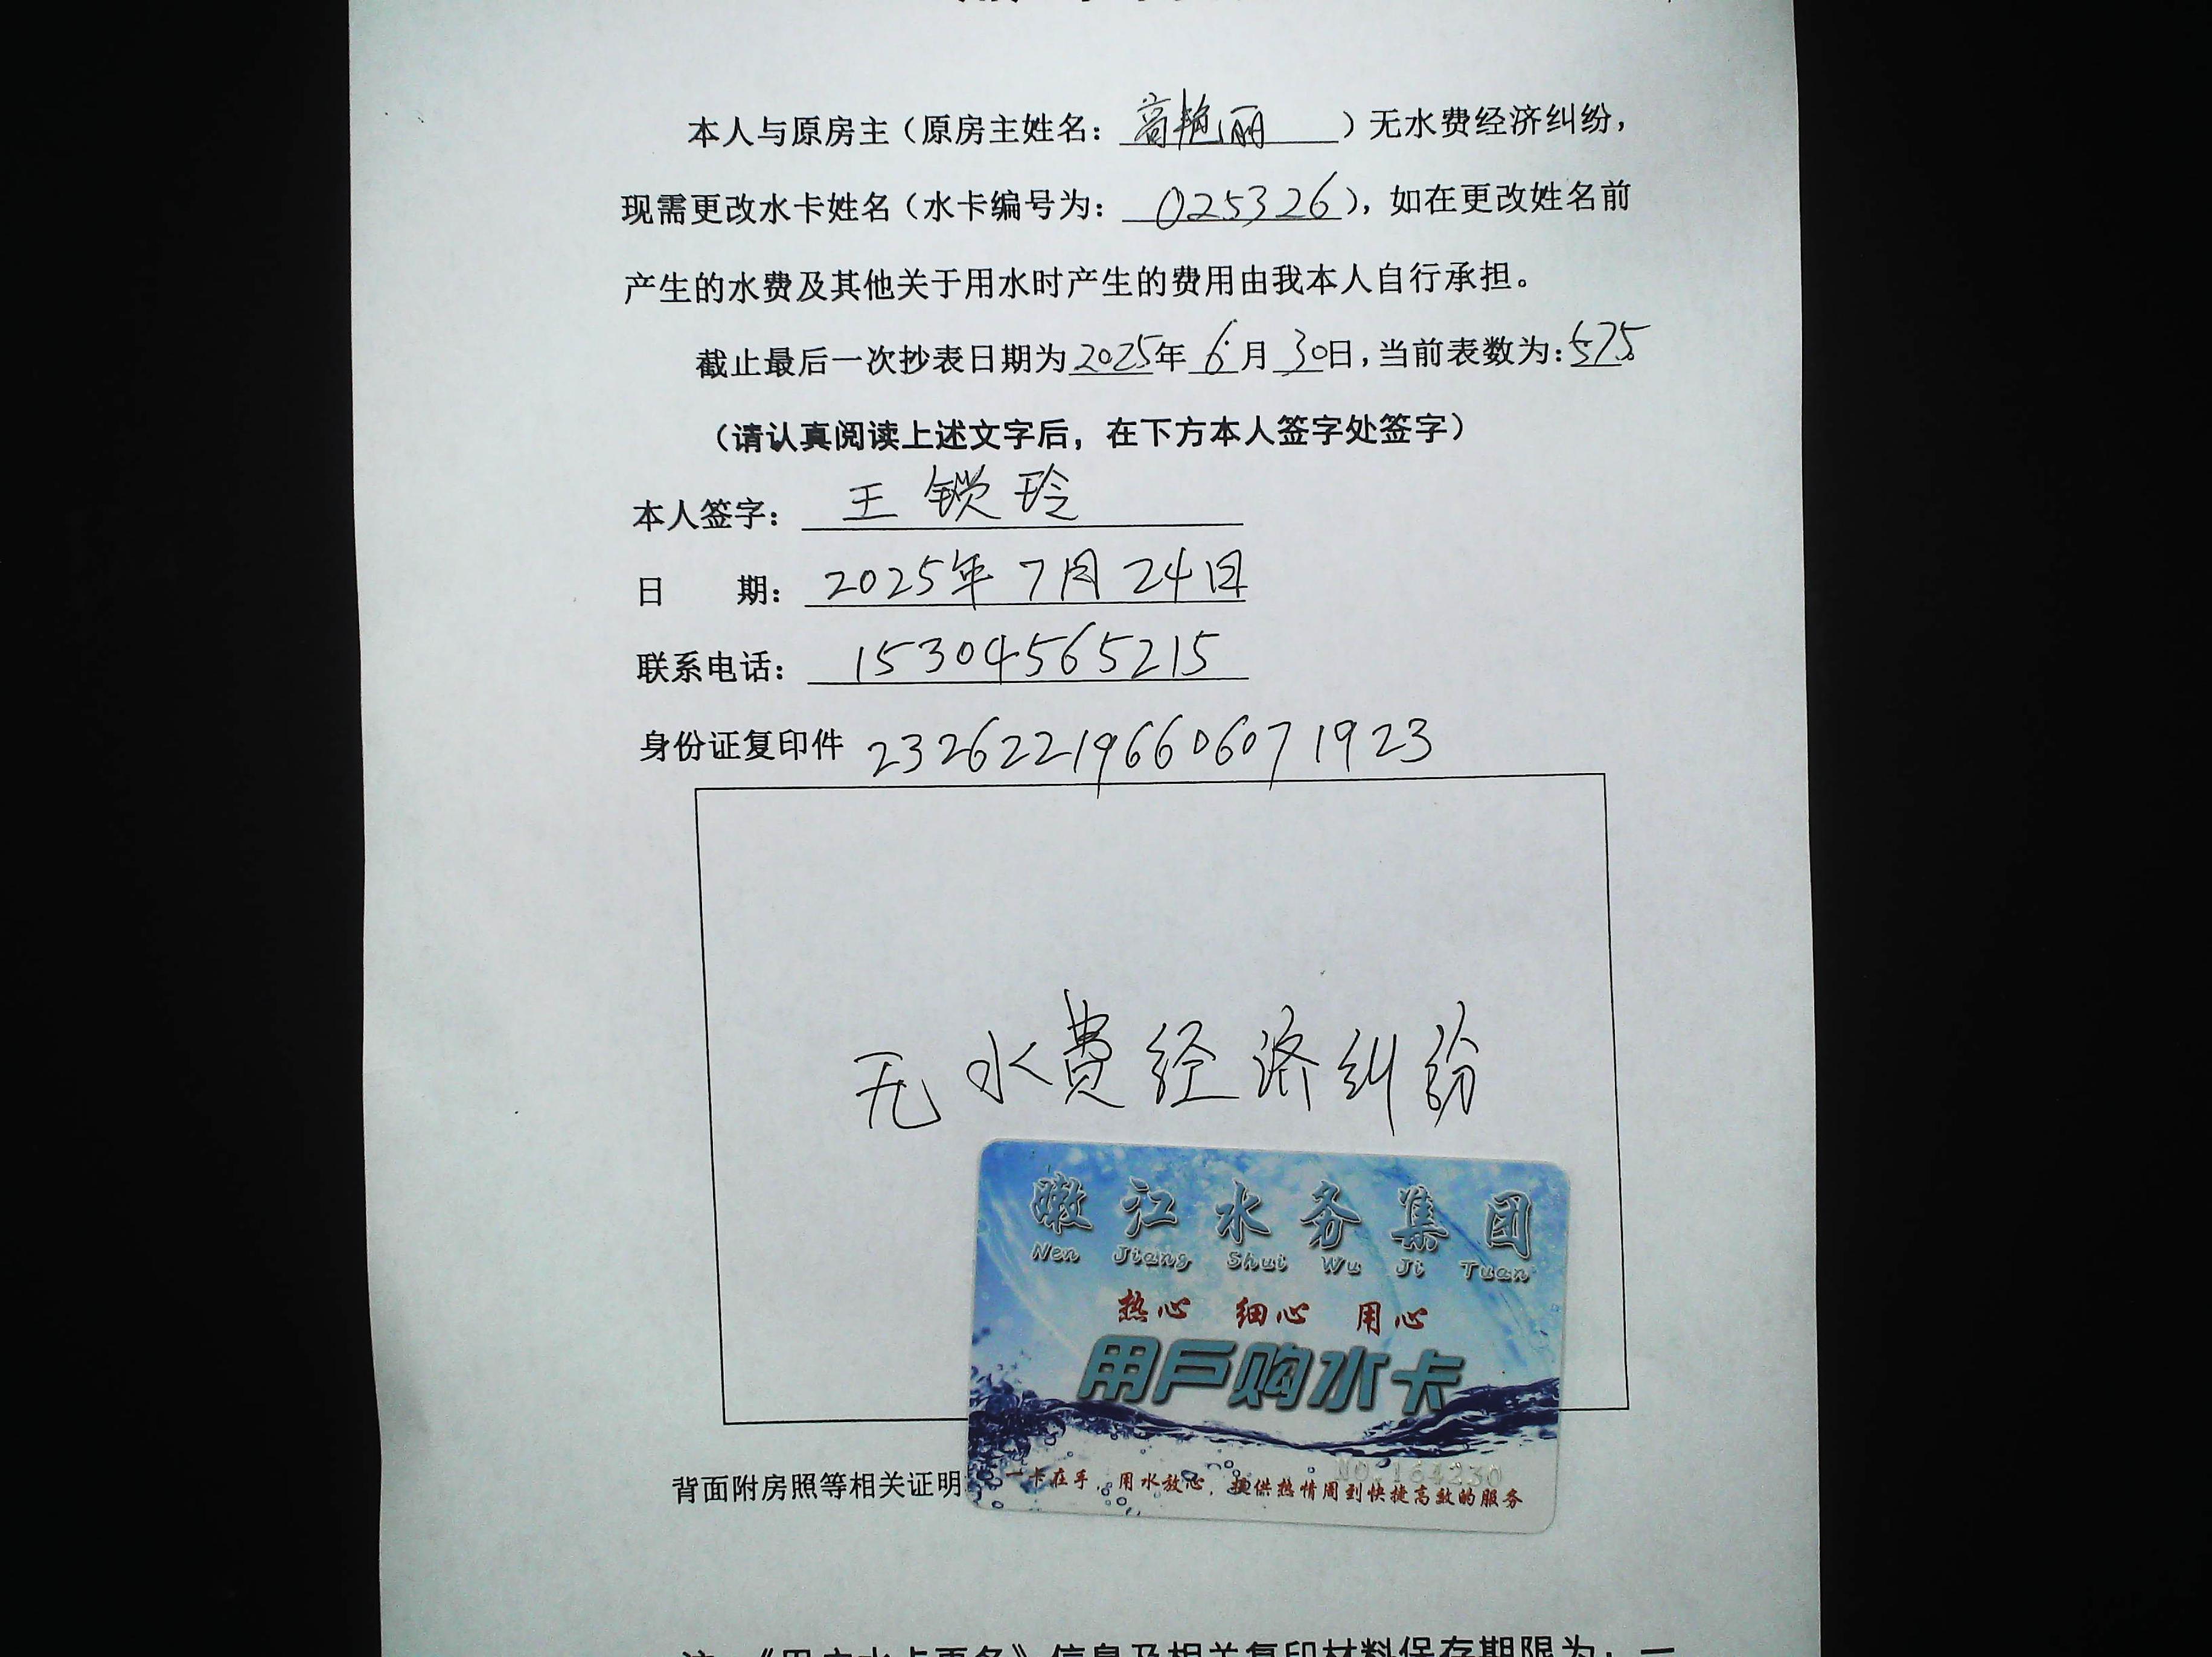 本人与原房主（原房主姓名：高艳丽）无水费经济纠纷，
现需更改水卡姓名（水卡编号为：025326），如在更改姓名前
产生的水费及其他关于用水时产生的费用由我本人自行承担。
截止最后一次抄表日期为2025年6月30日，当前表数为：575
（请认真阅读上述文字后，在下方本人签字处签字）
本人签字：王锁玲
日 期：2025年7月24日
联系电话：15304565215
身份证复印件 232622196606071923
无水费经济纠纷
嫩江水务集团
Nen Jiang Shui Wu Ji Tuan
热心 细心 用心
用户购水卡
NO.164230
一卡在手，用水放心，提供热情周到快捷高效的服务
背面附房照等相关证明
注：《用户水卡更名》信息及相关复印材料保存期限为：一